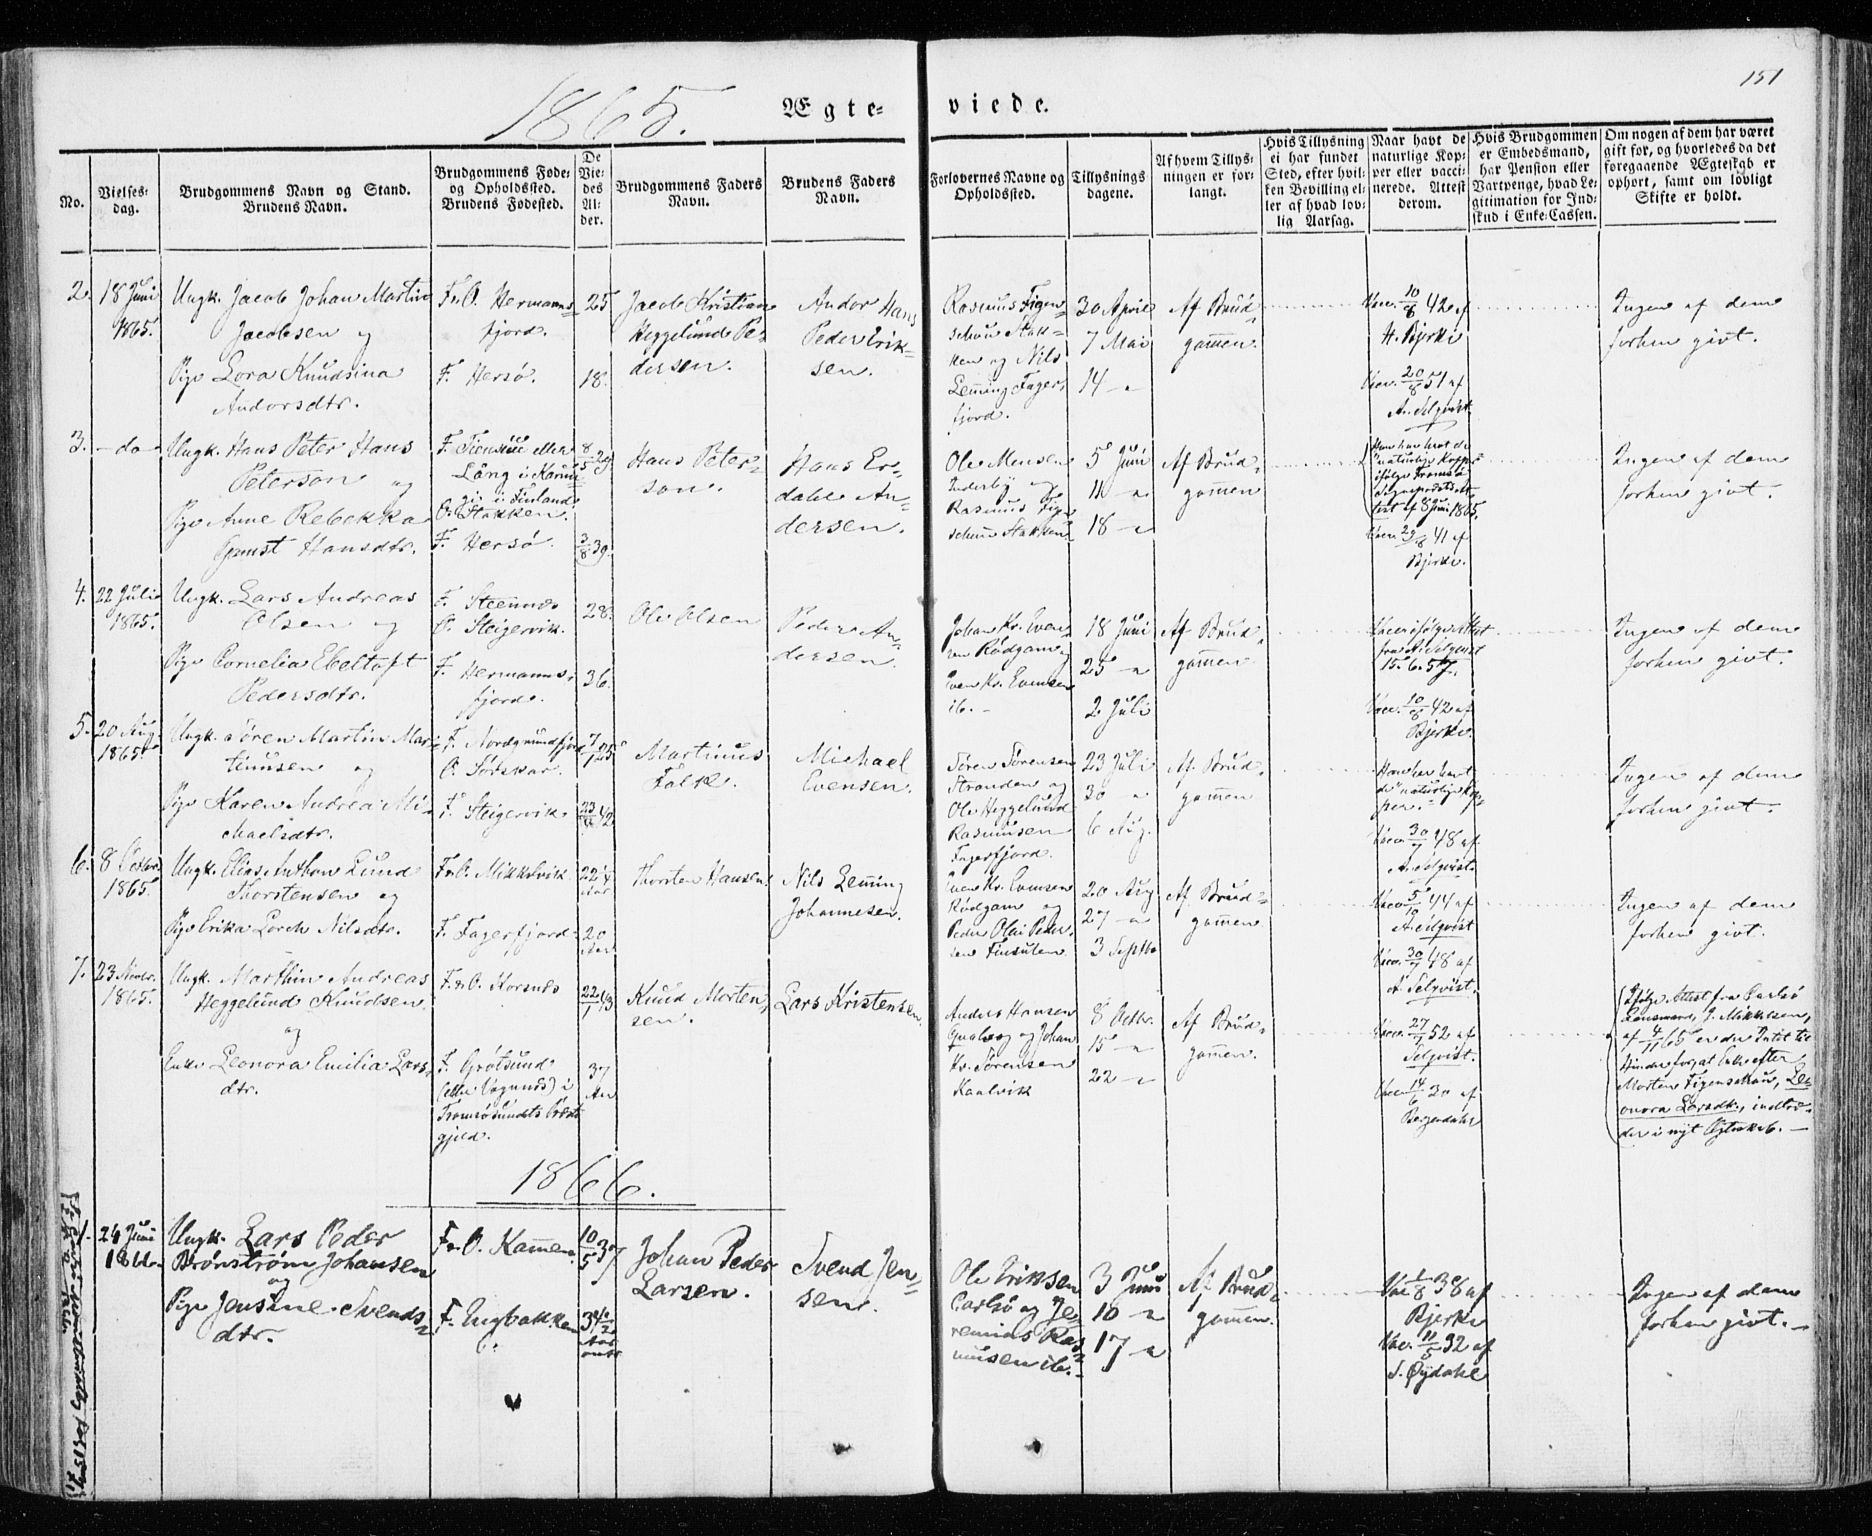 151
1865.
Ægte=
viede.
No.
Vielses=
dag.
Brudgommens Navn og Stand.
Brudens Navn.
Brudgommens Føde=
og Opholdssted.
Brudens Fødested.
De
Vie=
des
Al=
der.
Brudgommens Faders
Navn.
Brudens Faders
Navn.
Forlovernes Navne og
Opholdssted.
Tillysnings
dagene.
Af hvem Tillys=
ningen er for=
langt.
Hvis Tillysning
ei har fundet
Sted, efter hvil=
ken Bevilling el=
ler af hvad lov=
lig Aarsag.
Naar havt de
naturlige Kop=
per eller vacci=
nerede. Attest
derom.
Hvis Brudgommen
er Embedsmand,
har Pension eller
Vartpenge, hvad Le=
gitimation for Ind=
skud i Enke=Cassen.
Om nogen af dem har været
gift før, og hvorledes da det
foregaaende Ægteskab er
ophørt, samt om lovligt
Skifte er holdt.
2.
18 Juni
1865.
Ungk. Jacob Johan Martin
Jacobsen og
Pige Lora Knudsina
Andorsdtr.
F. & O. Hermanns=
fjord.
F. Hersø.
25
18.
Jacob Kristian
Heggelund Pe=
dersen.
Andor Hans
Peder Erik=
sen.
Rasmus Figen=
schou Stak=
ken og Nils
Lem̄ing Fager=
fjord.
30 April
7 Mai
14 - "
Af Brud=
gom̄en.
Vacc. 10/8 42 af
H. Bjerke
Vacc. 20/8 51 af
A. Selqvist.
Ingen af dem
forhen givt.
3.
- do -
Ungk. Hans Peter Hans
Peterson og
Pige Anne Rebekka
Hansdtr.
F. eller
Lång i
i Finland.
O. Stakken.
F. Hersø.
8/5 29
3/8 39.
Hans Peter=
son.
Hans Er=
dahl An=
dersen.
Ole Monsen
Inderby og
Rasmus Fige
schou Stakken.
5 Juni
11 - "
18 - "
Af Brud=
gom̄en
Han har havt de
"naturlige Kopper"
ifølge Tromsø
Sogneprests At=
test af 8 Juni 1865.
Vacc. 29/8 41 af
Bjerke.
Ingen af dem
forhen givt.
4.
22 Juli
1865.
Ungk. Lars Andreas
Olsen og
Pige Cornelia Ebeltoft
Pedersdtr.
F. Steennes
O. Steigervik.
F. Hermanns=
fjord.
28.
36.
Ole Olsen
Peder An=
dersen.
Johan Kr. Even=
sen Rødgam̄e
Even Kr. Evensen
ib. -
18 Juni
25 - "
2 Juli
Af Brud=
gom̄en
Vacc. ifølge Attest
fra A. Selqvist
15. 6. 57.
Vacc. 10/8 42 af
Bjerke.
Ingen af dem
forhen givt.
5.
20 Aug.
1865.
Ungk. Sören Martin Mar=
tinusen og
Pige Karen Andrea Mi=
chaelsdtr.
F. Nordgrundfjord
O. Sørskar.
F. Steigervik.
7/1 25
42.
Martinus
Falk.
Michael
Evensen.
Sören Sörensen
Stranden og
Ole Heggelund
Rasmusen
Fagerfjord.
23 Juli
30 - "
6 Aug.
Af Brud=
gom̄en
Han har havt
de "naturlige Kop=
per."
Vacc. 30/7 48 af
A. Selqvist.
Ingen af dem
forhen givt.
6.
8 Octbr.
1865.
Ungk. Elias Anthon Lund
Thorstensen og
Pige Erika Lorch Nilsdtr.
F. & O. Mikkelvik.
F. Fagerfjord.
22 1/4
Aar
20
Aar
Thorsten Hansen.
Nils Lem̄ing
Johannesen.
Even Kr. Evensen
Rødgam̄e og
Peder Olai Peder=
sen Finsulen.
20 Aug
27 - "
3 Septbr
Af Brud=
gom̄en
Vacc. 5/10 44 af
A. Selqvist
Vacc. 30/7 48 af
A. Selqvist.
Ingen af dem
forhen givt.
7.
23 Novbr.
1865.
Ungk. Marthin Andreas
Heggelund Knudsen
og
Enke Leonora Emilia Lars=
dtr.
F. & O. Korsnes
F. Grøtsund
(eller Vågnnes) i
Tromsøsundets Præste
gjeld.
22/1 43
37
Aar
Knud Morten=
sen.
Lars Kristensen.
Anders Hansen
og Johan
Kr. Sørensen
Kaalvik
8 Octbr.
15 - "
22 - "
Af Brud=
gom̄en.
Vacc. 27/7 52 af
Selqvist.
Vacc. 14/6 30 af
Ifølge Attest fra Carlsö
Lensmand, J. Mikkelsen,
af 4/11 65 er der Intet til
Hinder for, at Enke efter
Morten Figenschau, Le=
onora Larsdtr., indtræ=
der i nyt Ægteskab. -
1866.
1.
24 Juni
1866.
Ungk. Lars Peder
Brönström Johansen
og
Pige Jensine Svends=
dtr.
F. & O. Kam̄en.
F. Engbakken
10/5 37
34 1/2
Aar
omtr
Johan Peder
Larsen.
Svend Jen=
sen.
Ole Eriksen
Carlsö og Je=
remias Ras=
musen ib.
3 Juni
10 - "
17 - "
Af Brud=
gom̄en.
Vac. 1/8 38 af
Bjerke
Vac. 11/5 32 af
S. Øydahl
Ingen af dem
forhen givt. -